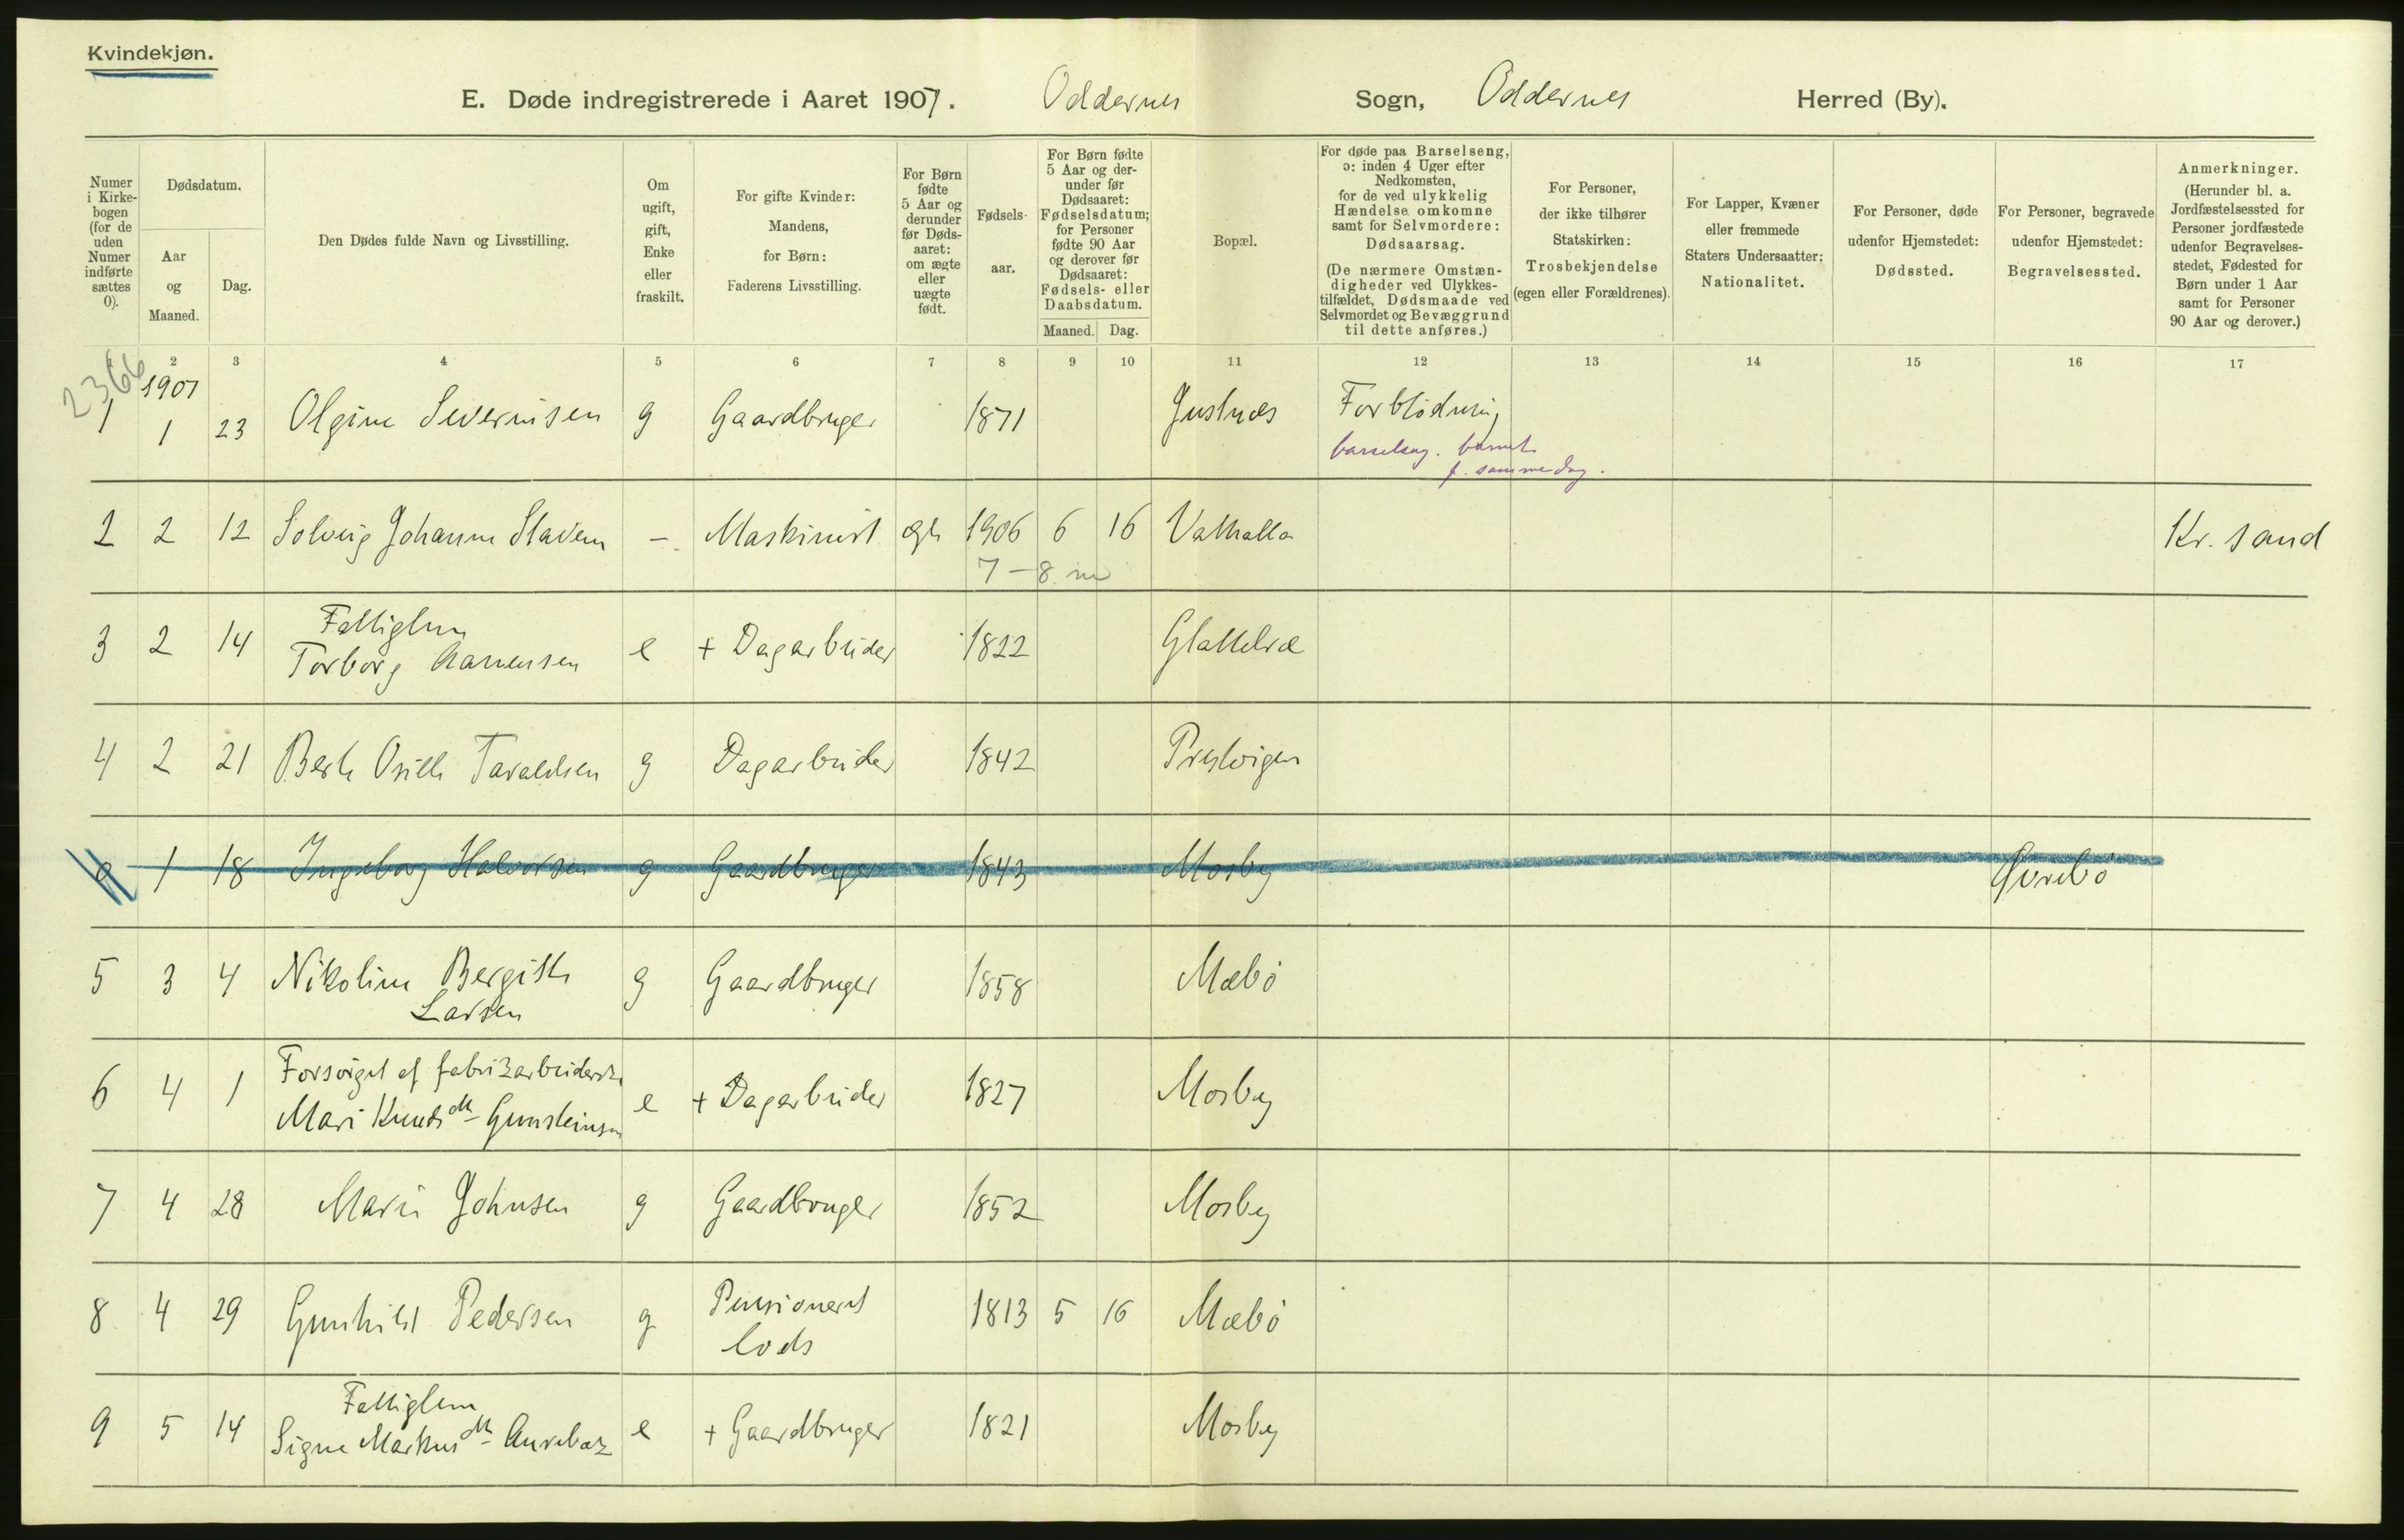 Kvindekjøn.
E. Døde indregistrerede i Aaret 1907. Oddernes Sogn, Oddernes Herred (By).
Numer i Kirkebogen (for de uden Numer indførte sættes 0).
Dødsdatum.
Aar og Maaned.
Dag.
Den Dødes fulde Navn og Livsstilling.
Om ugift, gift, Enke eller fraskilt.
For gifte Kvinder: Mandens, for Børn: Faderens Livsstilling.
For Børn fødte 5 Aar og derunder før Dødsaaret: om ægte eller uægte født.
Fødselsaar.
For Børn fødte 5 Aar og derunder før Dødsaaret: Fødselsdatum; for Personer fødte 90 Aar og derover før Dødsaaret: Fødsels- eller Daabsdatum.
Maaned. Dag.
Bopæl.
For døde paa Barselseng, ɔ: inden 4 Uger efter Nedkomsten, for de ved ulykkelig Hændelse omkomne samt for Selvmordere: Dødsaarsag.
(De nærmere Omstændigheder ved Ulykkestilfældet, Dødsmaade ved Selvmordet og Bevæggrund til dette anføres.)
For Personer, der ikke tilhører Statskirken: Trosbekjendelse (egen eller Forældrenes).
For Lapper, Kvæner eller fremmede Staters Undersaatter: Nationalitet.
For Personer, døde udenfor Hjemstedet: Dødssted.
For Personer, begravede udenfor Hjemstedet: Begravelsessted.
Anmerkninger.
(Herunder bl. a. Jordfæstelsessted for Personer jordfæstede udenfor Begravelsesstedet, Fødested for Børn under 1 Aar samt for Personer 90 Aar og derover.)
2 3 4 5 6 7 8 9 10 11 12 13 14 15 16 17
2366
1907
1 1 23 Olgine Severinsen g Gaardbruger 1871 Justnes Forblødning
barselseng. barnet
f. samme dag.
2 2 12 Solveig Johanne Slavem - Maskinist ægte 1906 6 16 Valhalla Kr. sand
7-8 m
Fattiglem
3 2 14 Torborg Aanensen e + Dagarbeider 1822 Glattelræ
4 2 21 Berte Osille Taraldsen g Dagarbeider 1842 Prestvigen
0 1 18 Ingeborg Halvorsen g Gaardbruger 1843 Mosby Øvrebø
5 3 4 Nikoline Bergitte g Gaardbruger 1858 Mæbø
Larsen
Forsørget af fabrikarbeiderske
6 4 1 Mari Knudsdtr Gunsteinsen e + Dagarbeider 1827 Mosby
7 4 28 Marie Johnsen g Gaardbruger 1852 Mosby
8 4 29 Gunhild Pedersen g Pensioneret 1813 5 16 Mæbø
lods
Fattiglem
9 5 14 Signe Markusdtr Aurebæk e + Gaardbruger 1821 Mosby